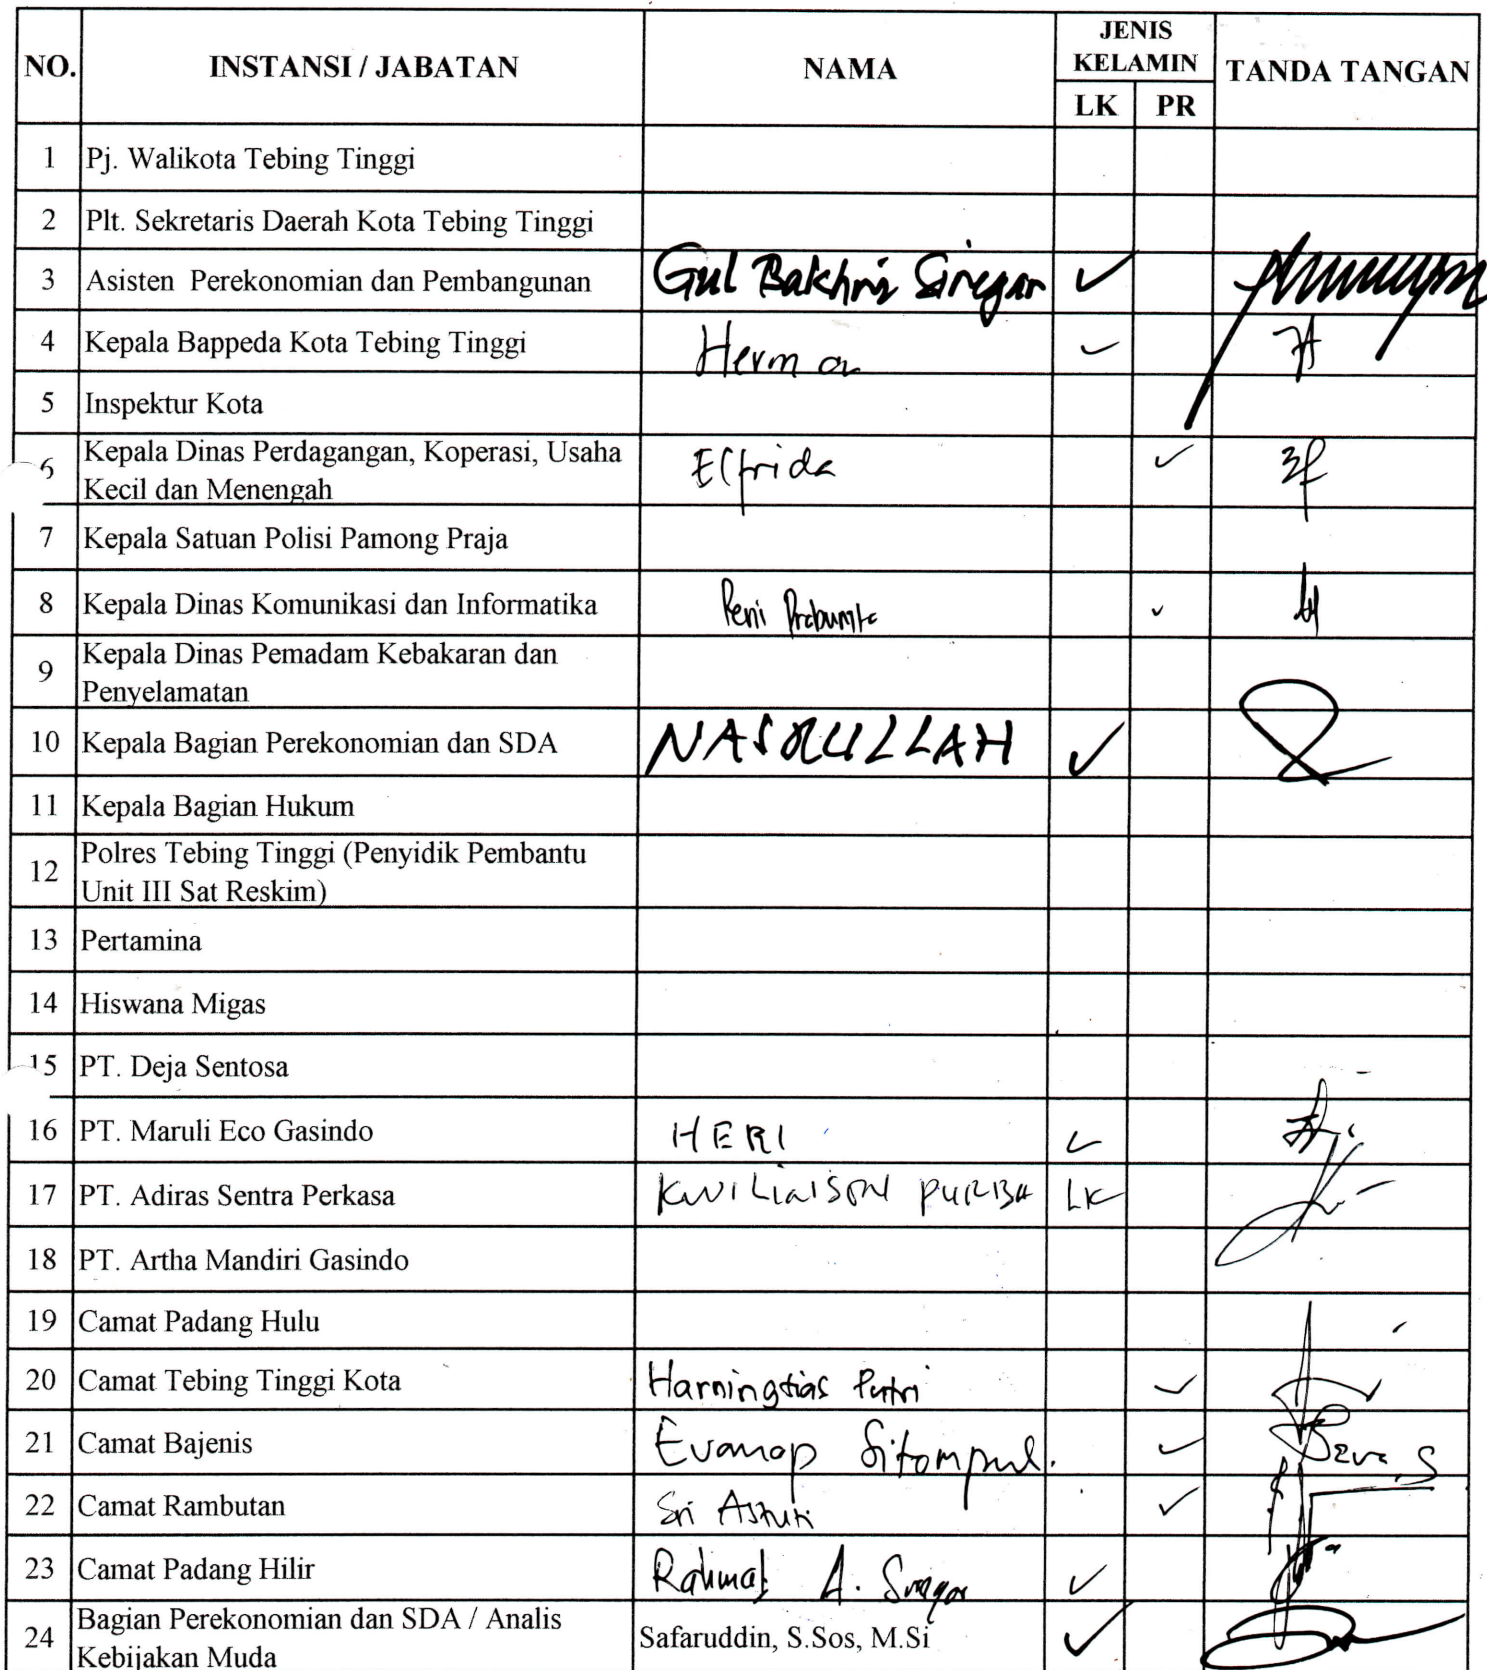 NO. INSTANSI / JABATAN NAMA JENIS KELAMIN TANDA TANGAN
LK PR
1 Pj. Walikota Tebing Tinggi
2 Plt. Sekretaris Daerah Kota Tebing Tinggi
3 Asisten Perekonomian dan Pembangunan Gul Bakhri Siregar ✓
4 Kepala Bappeda Kota Tebing Tinggi Herman ✓
5 Inspektur Kota
6 Kepala Dinas Perdagangan, Koperasi, Usaha
Kecil dan Menengah Elfrida ✓
7 Kepala Satuan Polisi Pamong Praja
8 Kepala Dinas Komunikasi dan Informatika Peni ✓
9 Kepala Dinas Pemadam Kebakaran dan
Penyelamatan
10 Kepala Bagian Perekonomian dan SDA NASRULLAH ✓
11 Kepala Bagian Hukum
12 Polres Tebing Tinggi (Penyidik Pembantu
Unit III Sat Reskim)
13 Pertamina
14 Hiswana Migas
15 PT. Deja Sentosa
16 PT. Maruli Eco Gasindo HERI ✓
17 PT. Adiras Sentra Perkasa PURBA LK
18 PT. Artha Mandiri Gasindo
19 Camat Padang Hulu
20 Camat Tebing Tinggi Kota Harningtias Putri ✓
21 Camat Bajenis Evanop Sitompul. ✓
22 Camat Rambutan Sri Astuti ✓
23 Camat Padang Hilir Rahmat A. Siregar ✓
24 Bagian Perekonomian dan SDA / Analis
Kebijakan Muda Safaruddin, S.Sos, M.Si ✓